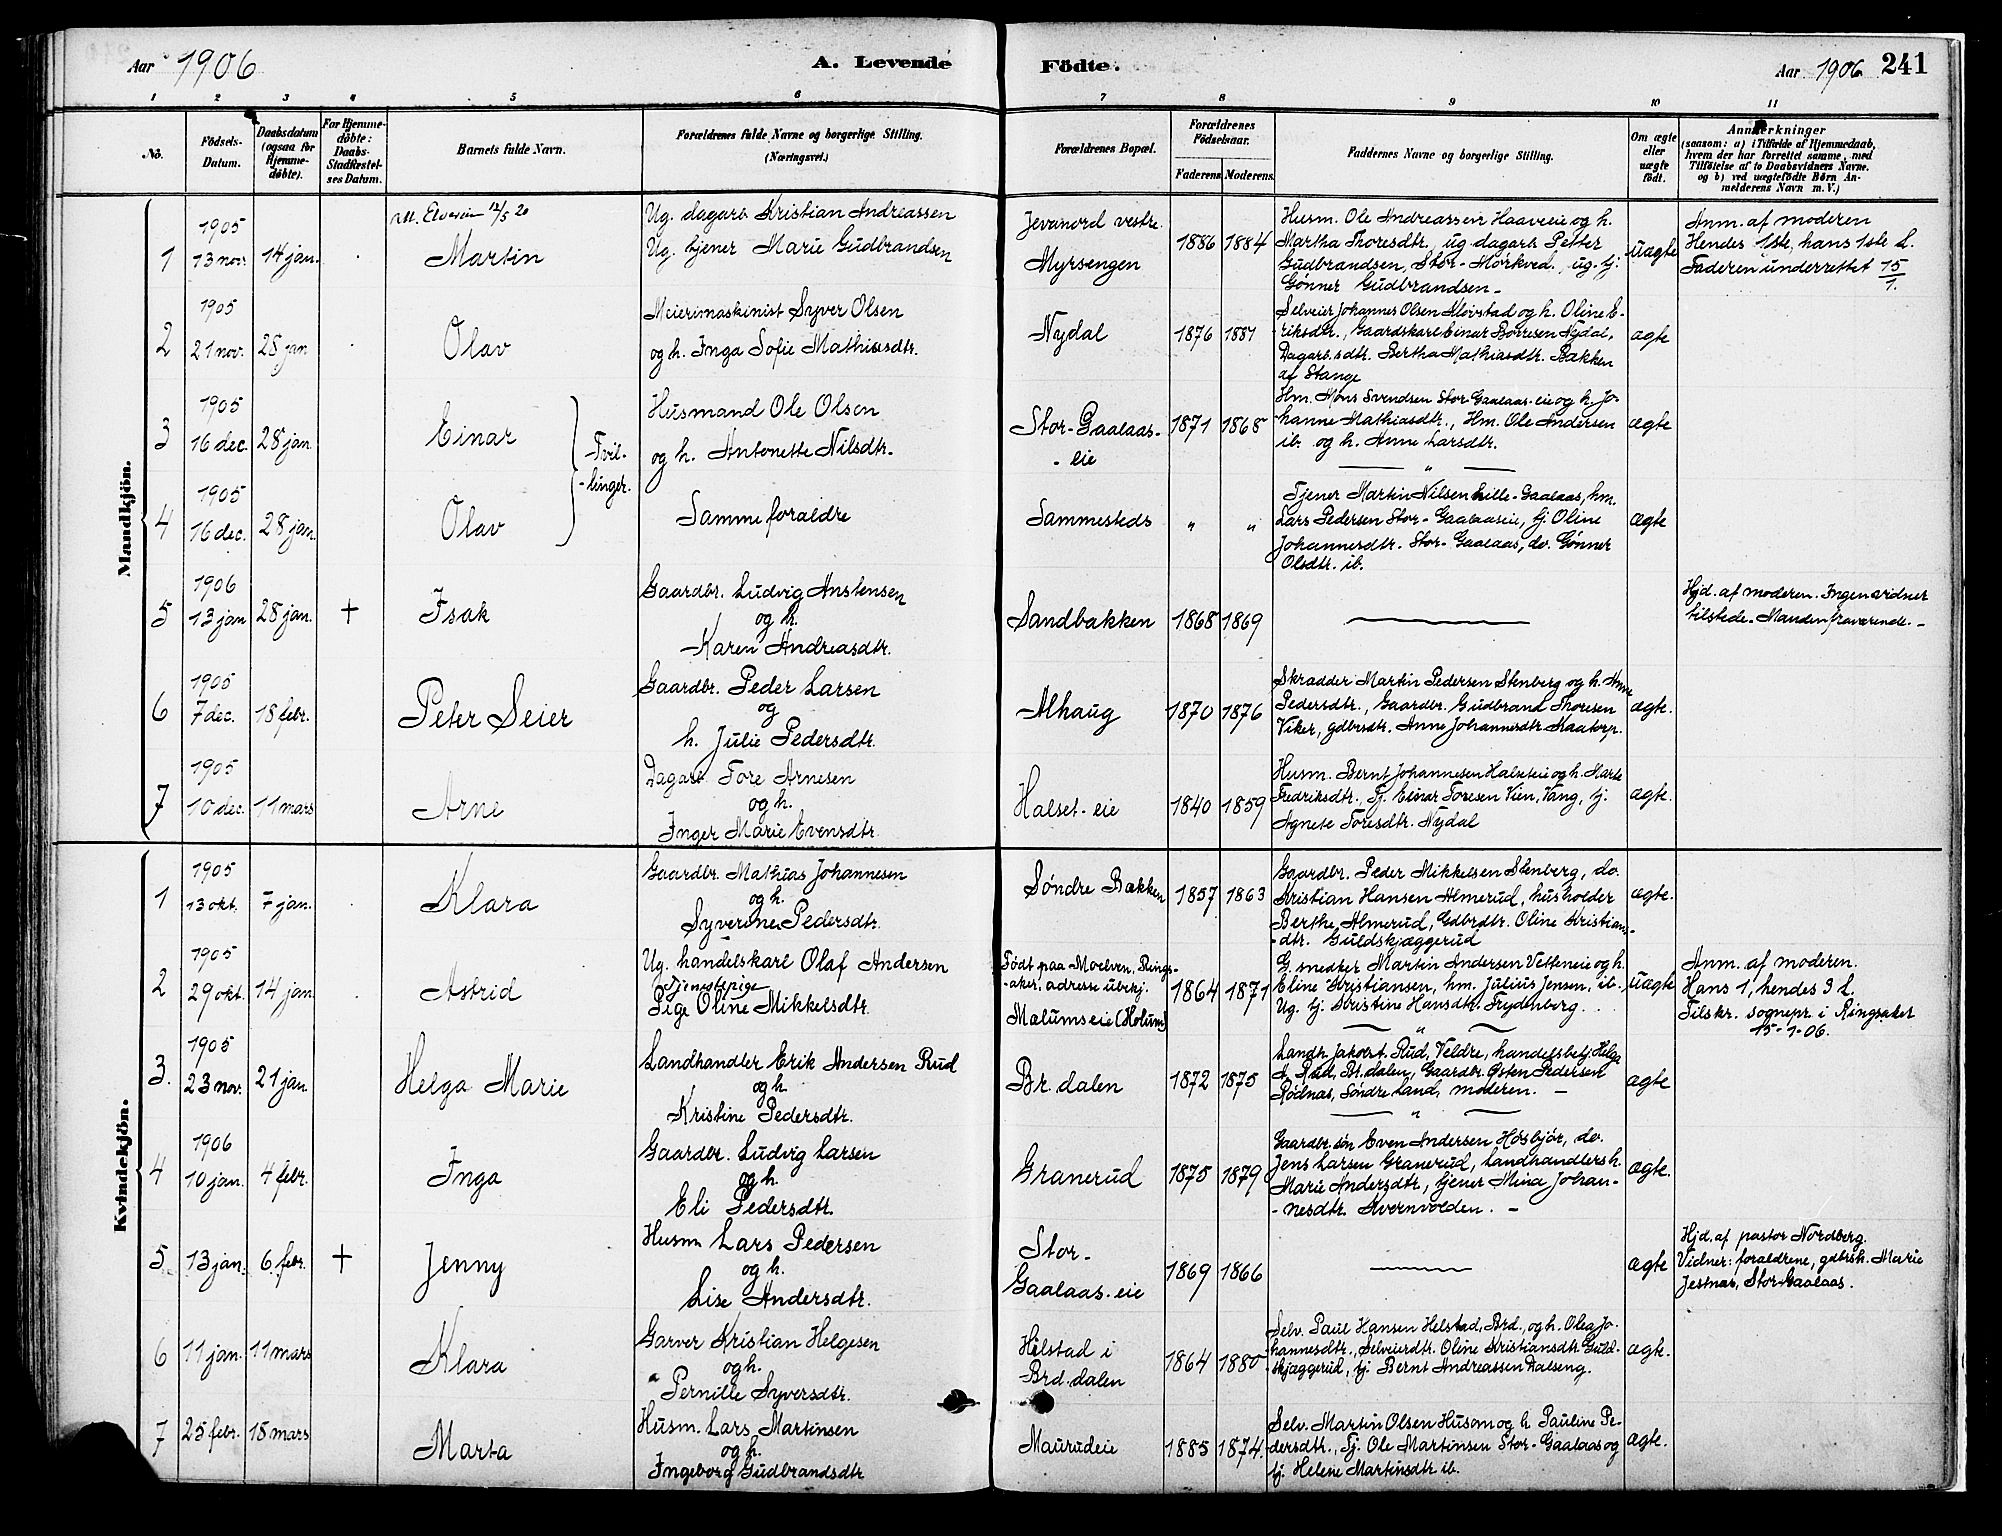 Aar 1906 A. Levende Födte. Aar 1906 241
1 2 3 4 5 6 7 8 9 10 11
No.
Födsels-
Datum.
Daabsdatum
(ogsaa for
Hjemme-
döbte).
For Hjemme-
döbte:
Daabs-
Stadfæstel-
ses Datum.
Barnets fulde Navn.
Forældrenes fulde Navne og borgerlige Stilling.
(Næringsvei.)
Forældrenes Bopæl.
Forældrenes
Födselsaar.
Faderens Moderens
Faddernes Navne og borgerlige Stilling.
Om ægte
eller
uægte
födt.
Anmærkninger
(saasom: a) i Tilfælde af Hjemmedaab,
hvem der har forrettet samme, med
Tilföielse af to Daabsvidners Navne.
og b) ved uægtefödte Börn An-
melderens Navn m. V.)
Mandkjön.
1
1905
13 nov.
14 jan.
Martin
Ug. dagarb Kristian Andreassen
Ug. tjener Marie Gudbrandsen
Jevanord vestre.
Myrsengen
1886 1884
Husm. Ole Andreassen Haaveeie og h.
Martha Thoresdtr., ug dagarb Petter
Gudbrandsen, Stor-Mørkved., ug. tj.
Gønner Gudbrandsen
uægte
Anm. af moderen
Hendes 1ste, hans 1ste L.
Faderen underrettet 15/1.
2
1905
21 nov.
28 jan
Olav
Meierimaskinist Syver Olsen
og h. Inga Sofie Mathisdtr.
Nydal
1876 1881
Selveier Johannes Olsen Kløvstad og h. Oline E-
riksdtr., Gaardskarl Einar Børresen Nydal,
Dagarb.sdtr. Bertha Mathiasdtr. Bakken
af Stange
ægte
3
1905
16 dec.
28 jan.
Einar
Tvil-
-linger.
Husmand Ole Olsen
og h. Antonette Nilsdtr.
Stor-Gaalaas-
-eie
1871 1868
Hm. Mons Svendsen Stor Gaalaas-eie og h. Jo-
hanne Mathiasdtr., Hm. Ole Andersen
ib. og h. Anne Larsdtr.
ægte
4
1905
16 dec.
28 jan.
Olav
Samme foraldre
Sammesteds
" "
Tjener Martin Nilsen Lille-Gaalaas, hm.
Lars Pedersen Stor-Gaalaaseie, tj. Oline
Johannesdtr. Stor-Gaalaas, do. Gønner
Olsdtr. ib.
ægte
5
1906
13 jan
28 jan.
+
Isak
Gaardbr. Ludvig Anstensen
og h.
Karen Andreasdtr.
Sandbakken
1868 1869
Hjd. af moderen. Ingen vidner
tilstede. Manden fraværende. -
6
1905
7 dec.
18 febr.
Peter Seier
Gaardbr. Peder Larsen
og
h. Julie Pedersdtr.
Alhaug
1870 1876
Skrædder Martin Pedersen Stenberg og h. Anne
Pedersdtr., Gaardbr. Gudbrand Thoresen
Viker, gdbrsdtr. Anne Johannesdtr. Kaatorp.
ægte.
7
1905
10 dec.
11 mars
Arne
Dagarb. Tore Arnesen
og h.
Inger Marie Evensdtr.
Halset-eie
1840 1859
Husm. Bernt Johannesen Halseteie og h. Marte
Fredriksdtr., Tj. Einar Toresen Vien, Vang, tj.
Agnete Toresdtr. Nydal
ægte.
Kvindekjön.
1
1905
13 okt.
7 jan.
Klara
Gaardbr. Mathias Johannesen
og h.
Syverine Pedersdtr.
Søndre Bakken
1857 1863
Gaardbr. Peder Mikkelsen Stenberg, do.
Kristian Hansen Almerud, husholder
Berthe Almerud, Gdbrdtr. Oline Kristians-
-dtr. Guldskjæggerud
ægte.
2
1905
29 okt.
14 jan.
Astrid
Ug. handelskarl Olaf Andersen
tjenestepige
Pige Oline Mikkelsdtr.
Født paa Moelven, Rings-
aker, adresse ubekj.
Mælumseie (Holum)
1864 1871
G. snedker Martin Andersen Vetteneie og h.
Eline Kristiansen, hm. Julius Jensen, ib.
Ug. tj. Kristine Hansdtr. Frydenberg
uægte
Anm. af moderen.
Hans 1, hendes 3 L.
Tilskr. sognepr. i Ringsaker
15-1-06.
3.
1905
23 nov.
21 jan.
Helga Marie
Landhandler Erik Andersen Rud
og h.
Kristine Pedersdtr.
Br. dalen
1872 1875
Landh. Jakob A. Rud, Veldre, handelsbetj. Helga
A. Rud, Br. dalen, Gaardbr. Østen Pedersen
Rødnæs, Søndre Land, moderen. -
ægte
4
1906
10 jan.
4 febr.
Inga
Gaardbr. Ludvig Larsen
og h.
Eli Pedersdtr.
Granerud
1875 1879
Gaardbr. søn Even Andersen Hosbjør, do.
Jens Larsen Granerud, Landhandlersh.
Marie Andersdtr, tjener Mina Johan-
-nesdtr. Kvernvolden. -
ægte.
5
13 jan.
6 febr.
+
Jenny
Husm Lars Pedersen
og h.
Lise Andersdtr.
Stor-
Gaalaas-eie
1869 1866
ægte
Hjd. af pastor Nordberg.
Vidner: foraldrene, gdbrsk. Marie
Jestnæs, Stor-Gaalaas.
6
11 jan.
11 mars
Klara
Garver Kristian Helgesen
og h.
Pernille Syversdtr.
Helstad i
Brd.dalen
1864 1880
Selv. Paul Hansen Helstad, Brd., og h. Olea Jo-
hannesdtr., Selveierdtr. Oline Kristiansdtr. Guld-
skjæggerud, tj. Bernt Andreassen Dalseng.
ægte.
7
25 febr.
18 mars
Marta
Husm. Lars Martinsen
og h.
Ingeborg Gudbrandsdtr
Maurudeie
1885 1874.
Selv. Martin Olsen Husom og h Pauline Pe-
dersdtr., Tj. Ole Martinsen Stor-Gaalaas og
tj. Helene Martinsdtr ib.
ægte.